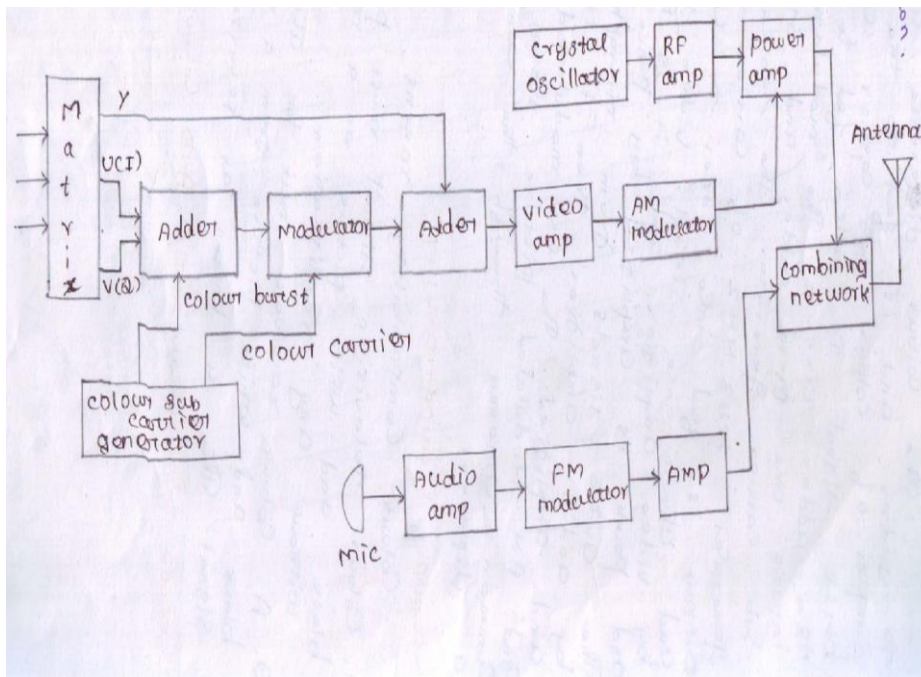 Crystal
oscillator
RF
amp
power
amp
Antenna
M
a
t
r
i
x
Y
U(I)
V(Q)
Adder
modulator
Adder
video
amp
AM
modulator
Combining
network
colour burst
colour carrier
colour sub
carrier
generator
mic
Audio
amp
FM
modulator
AMP